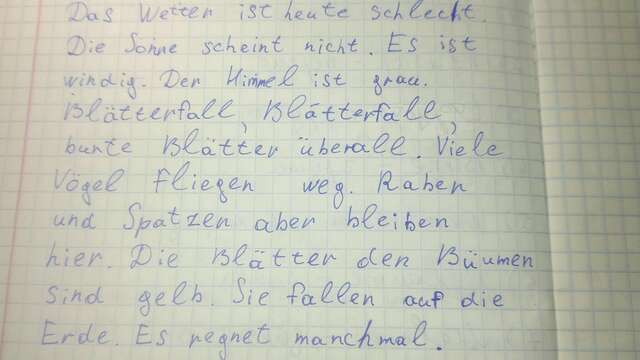 Das Wetter ist heute schlecht.
Die Sonne scheint nicht. Es ist
windig. Der Himmel ist grau.
Blätterfall, Blätterfall,
bunte Blätter überall. Viele
Vögel fliegen weg. Raben
und Spatzen aber bleiben
hier. Die Blätter den Bäumen
sind gelb. Sie fallen auf die
Erde. Es regnet manchmal.